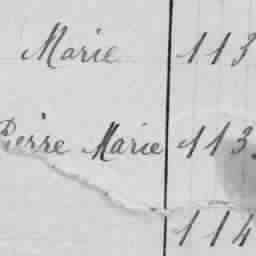 Marie 113
Pierre Marie 113
114